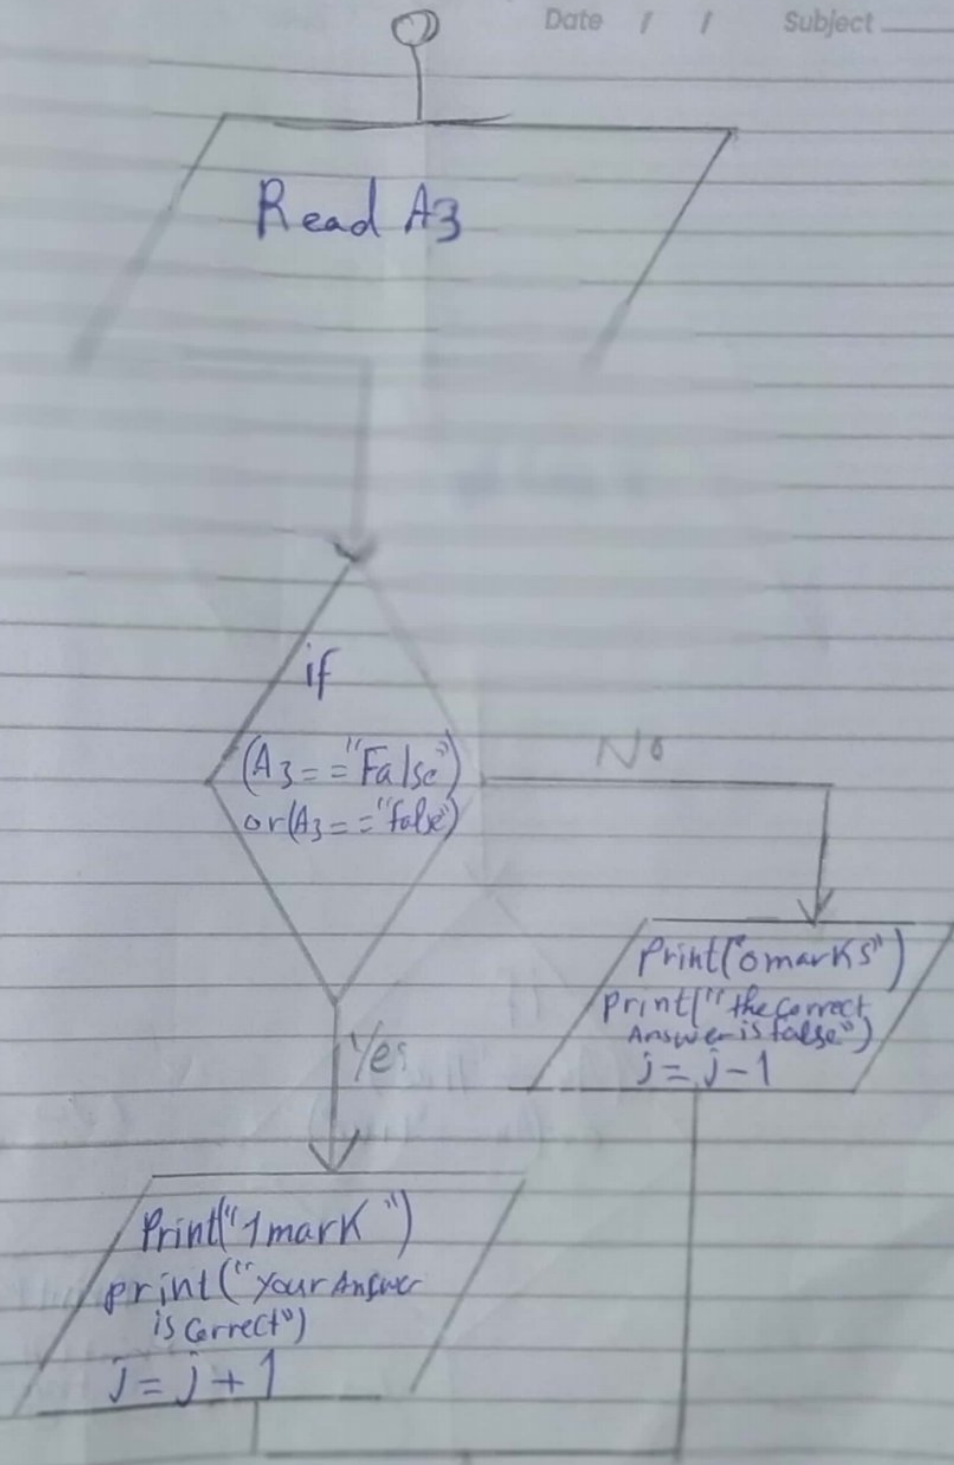 Date / / Subject
Read A3
if
(A3=="False")
or(A3=="false")
No
Print("0 marks")
print("the correct
Answer is false")
j=j-1
Yes
Print("1 mark")
print("your Answer
is correct")
j=j+1